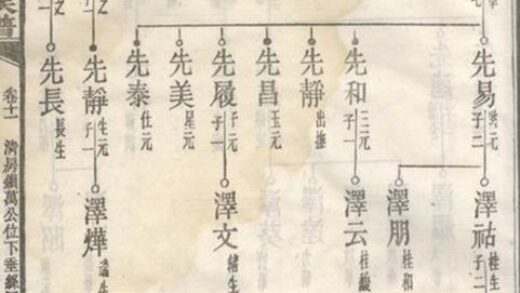 先易
洪元
子二
先和
三元
子一
先静
出撫
先昌
玉元
先履
子元
子一
先美
尾元
先泰
仕元
先靜
生元
子一
先長
長生
澤祜
桂生
子二
澤朋
桂和
澤云
桂馥
澤文
緒生
澤燁
卷十一
濟房鎮萬公位下垂絲